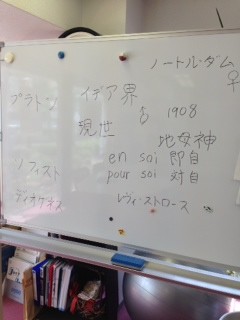 ノートル・ダム
♀
プラトン イデア界
♂ 1908
現世 地母神
ソフィスト en soi 即自
pour soi 対自
ディオゲネス レヴィ・ストロース